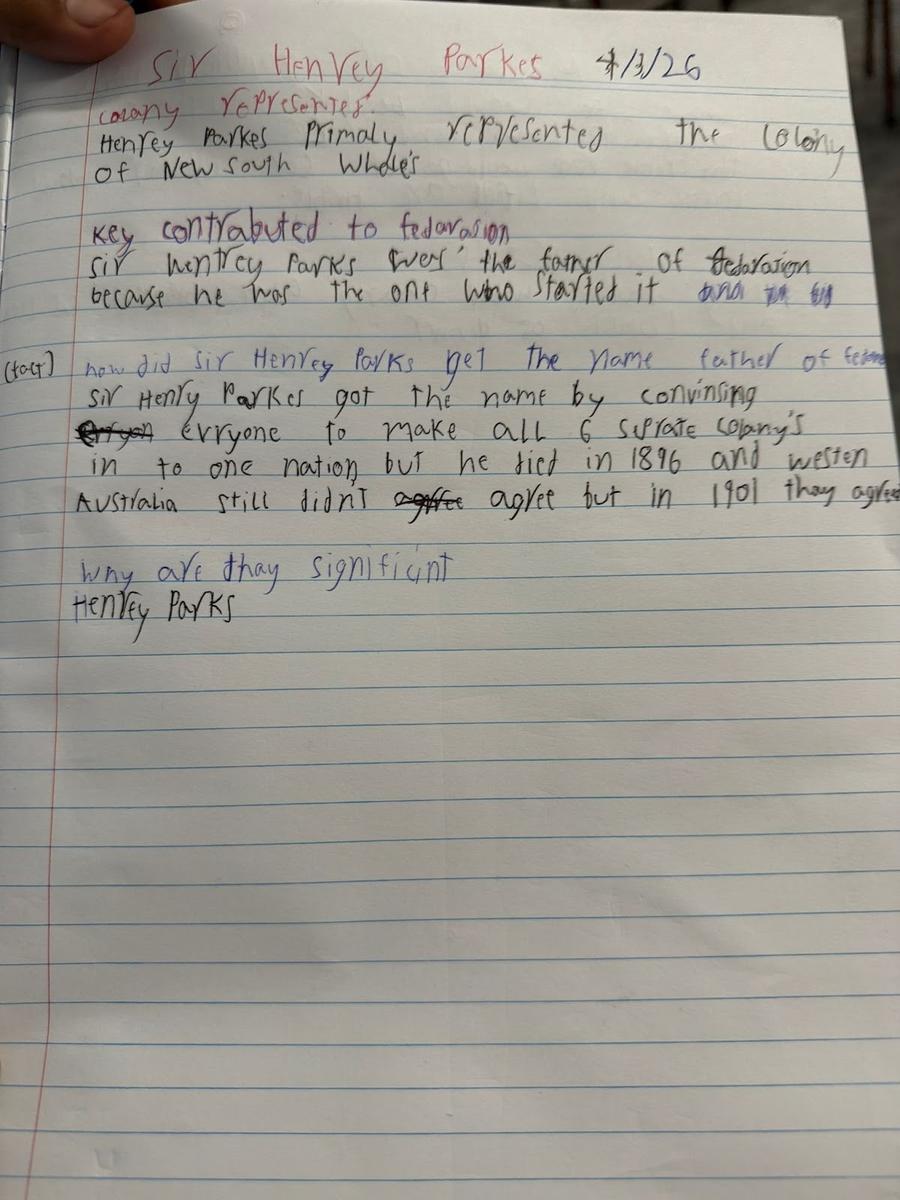 Sir Henrey Parkes 4/3/26
colany represented
Henrey Parkes Primaly represented the Colony
of New south Whale's
key contrabuted to fedarasion
sir hentrey Parks wers' the father of fedaration
because he was the one who started it and
(fact) how did sir Henrey Parks get the name father of
sir Henry Parkes got the name by convinsing
erryone to make all 6 suprate colany's
in to one nation, but he died in 1896 and westen
Australia still didn't agree but in 1901 thay agreed
Why are thay significint
Henrey Parks